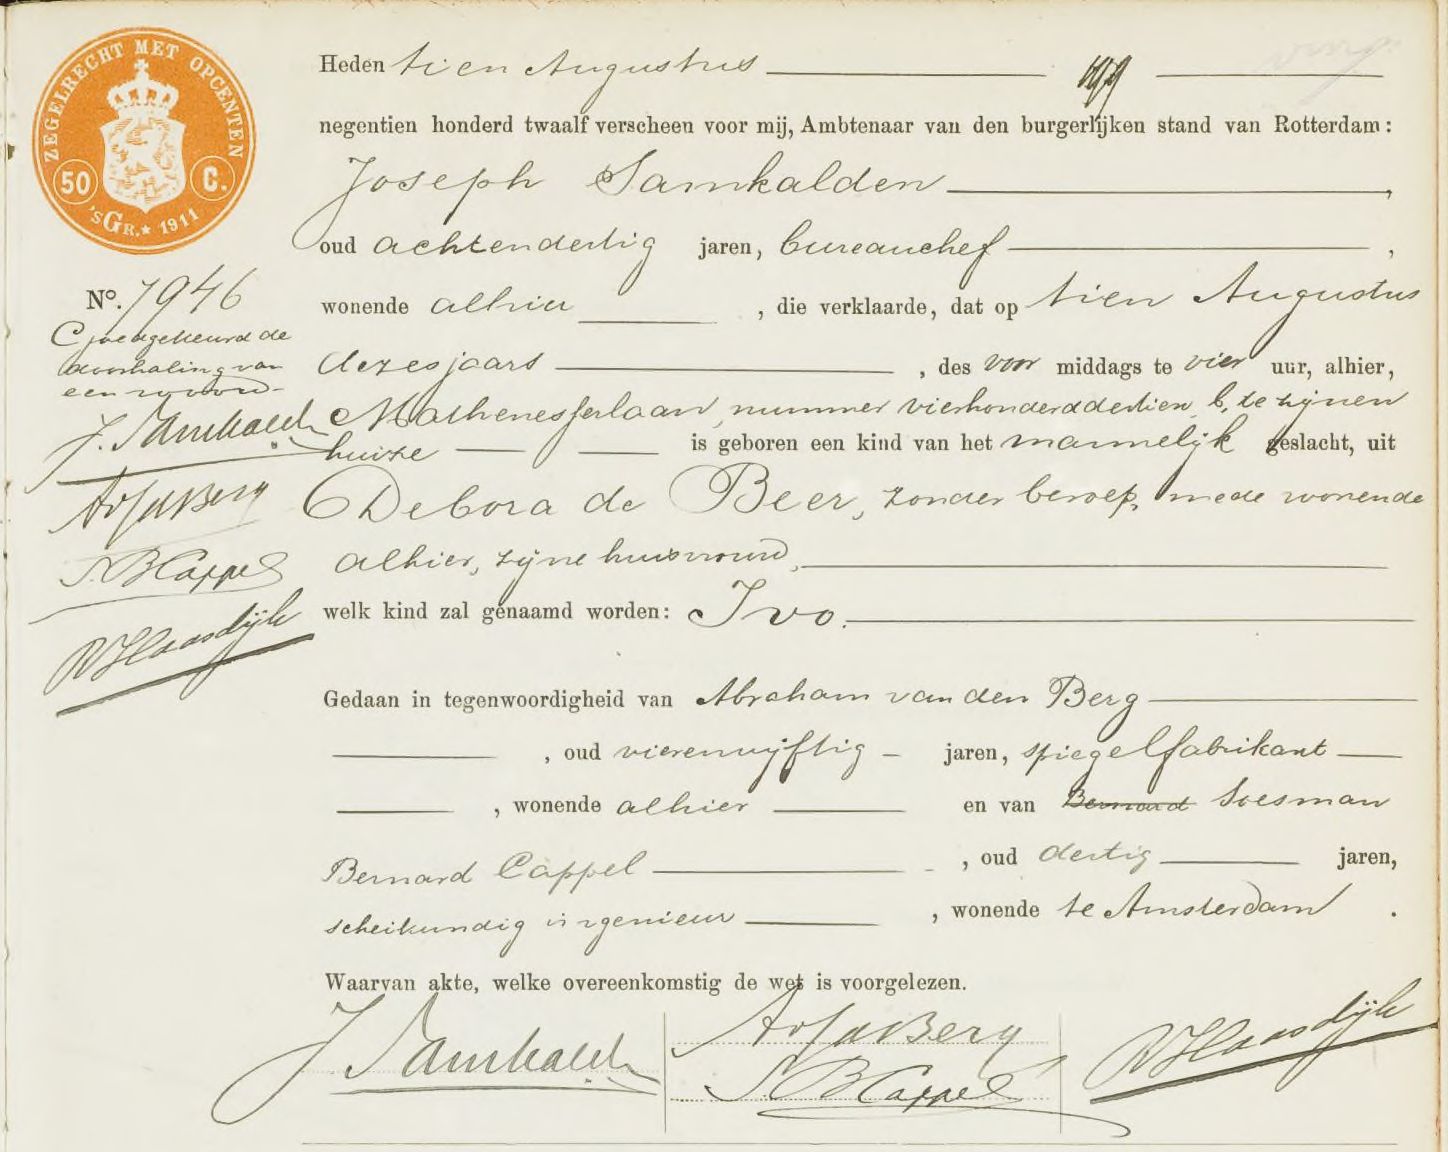 ZEGELRECHT MET OPCENTEN
50 C.
'sGR.★ 1911
Heden tien Augustus
negentien honderd twaalf verscheen voor mij, Ambtenaar van den burgerlijken stand van Rotterdam:
Joseph Samkalden,
oud achtendertig jaren, bureauchef,
No. 7946
wonende alhier, die verklaarde, dat op tien Augustus
Goedgekeurd de
doorhaling van
een woord
dezes jaars, des voor middags te vier uur, alhier,
J. Samkalden
Mathenesserlaan, nummer vierhonderddertien b, te zijnen
huize is geboren een kind van het mannelijk geslacht, uit
AvdBerg
Debora de Beer, zonder beroep, mede wonende
S. B Cappel
alhier, zijne huisvrouw,
welk kind zal genaamd worden: Ivo.
Haasdijk
Gedaan in tegenwoordigheid van Abraham van den Berg
, oud vierenvijftig jaren, spiegelfabrikant
, wonende alhier en van Bernard Soesman
Bernard Cappel, oud dertig jaren,
scheikundig ingenieur, wonende te Amsterdam.
Waarvan akte, welke overeenkomstig de wet is voorgelezen.
J Samkalden
AvdBerg
S B Cappel
Haasdijk